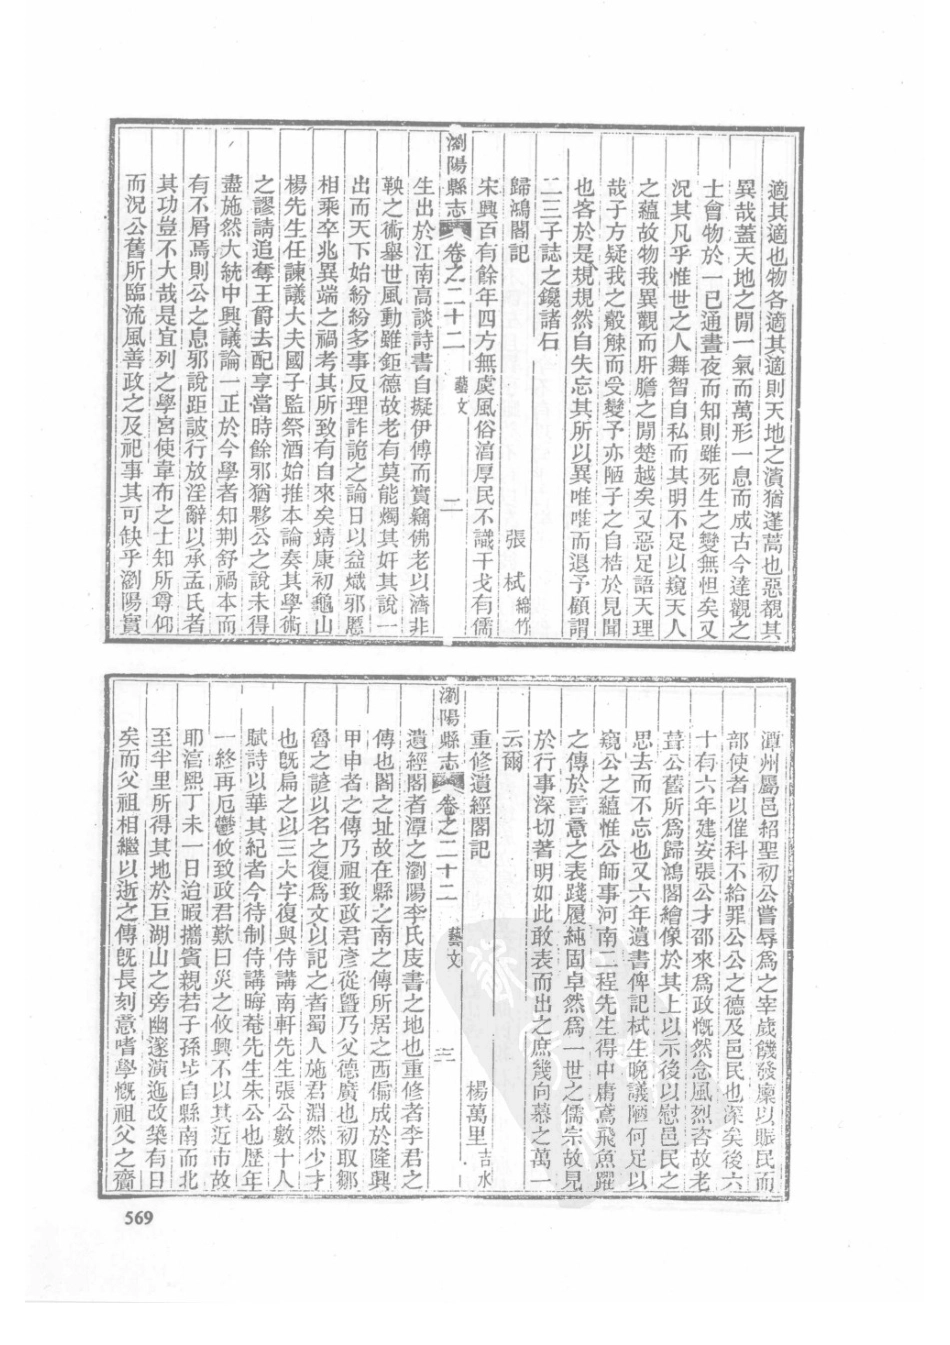 適其適也物各適其適則天地之濱猶蓬蒿也惡覩其
異哉蓋天地之閒一氣而萬形一息而成古今達觀之
士會物於一已通晝夜而知則雖死生之變無怛矣又
況其凡乎惟世之人舞智自私而其明不足以窺天人
之蘊故物我異觀而肝膽之閒楚越矣又惡足語天理
哉子方疑我之觳觫而受變予亦陋子之自梏於見聞
也客於是規規然自失忘其所以異唯唯而退予顧謂
二三子誌之鑱諸石
歸鴻閣記 張栻 綿竹
宋興百有餘年四方無虞風俗湻厚民不識干戈有儒
瀏陽縣志 卷之二十二 藝文 二
生出於江南高談詩書自擬伊傅而實竊佛老以濟非
鞅之術舉世風動雖鉅德故老有莫能燭其奸其說一
出而天下始紛紛多事反理詐詭之論日以益熾邪慝
相乘卒兆異端之禍考其所致有自來矣靖康初龜山
楊先生任諫議大夫國子監祭酒始推本論奏其學術
之謬請追奪王爵去配享當時餘邪猶夥公之說未得
盡施然大統中興議論一正於今學者知荆舒禍本而
有不屑焉則公之息邪說距詖行放淫辭以承孟氏者
其功豈不大哉是宜列之學宮使韋布之士知所尊仰
而況公舊所臨流風善政之及祀事其可缺乎瀏陽實
潭州屬邑紹聖初公嘗辱爲之宰歲饑發廩以賑民而
部使者以催科不給罪公公之德及邑民也深矣後六
十有六年建安張公才邵來爲政慨然念風烈咨故老
葺公舊所爲歸鴻閣繪像於其上以示後以慰邑民之
思去而不忘也又六年遺書俾記栻生晚議陋何足以
窺公之蘊惟公師事河南二程先生得中庸鳶飛魚躍
之傳於言意之表踐履純固卓然爲一世之儒宗故見
於行事深切著明如此敢表而出之庶幾向慕之萬一
云爾
重修遺經閣記 楊萬里 吉水
瀏陽縣志 卷之二十二 藝文 三
遺經閣者潭之瀏陽李氏庋書之地也重修者李君之
傳也閣之址故在縣之南之傳所居之西偏成於隆興
甲申者之傳乃祖致政君彥從曁乃父德廣也初取鄒
魯之諺以名之復爲文以記之者蜀人施君淵然少才
也旣扁之以三大字復與侍講南軒先生張公數十人
賦詩以華其紀者今待制侍講晦菴先生朱公也歷年
一終再厄鬱攸致政君歎曰災之攸興不以其近市故
耶湻熙丁未一日追暇攜賓親若子孫步自縣南而北
至半里所得其地於巨湖山之旁幽邃演迤改築有日
矣而父祖相繼以逝之傳旣長刻意嗜學慨祖父之齎
569